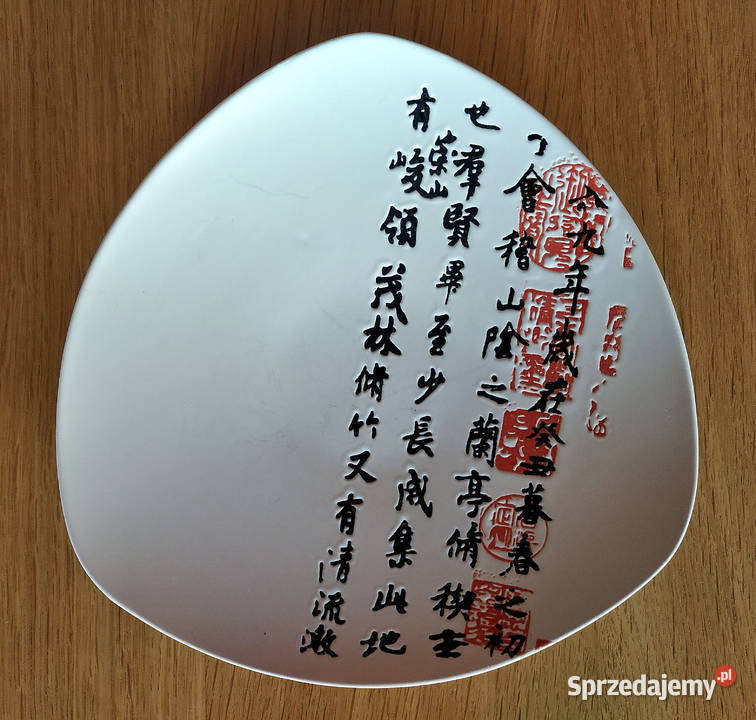 九年歲在癸丑暮春之初
會稽山陰之蘭亭脩稧事
也羣賢畢至少長咸集此地
有崇山峻領茂林脩竹又有清流激
Sprzedajemy.pl